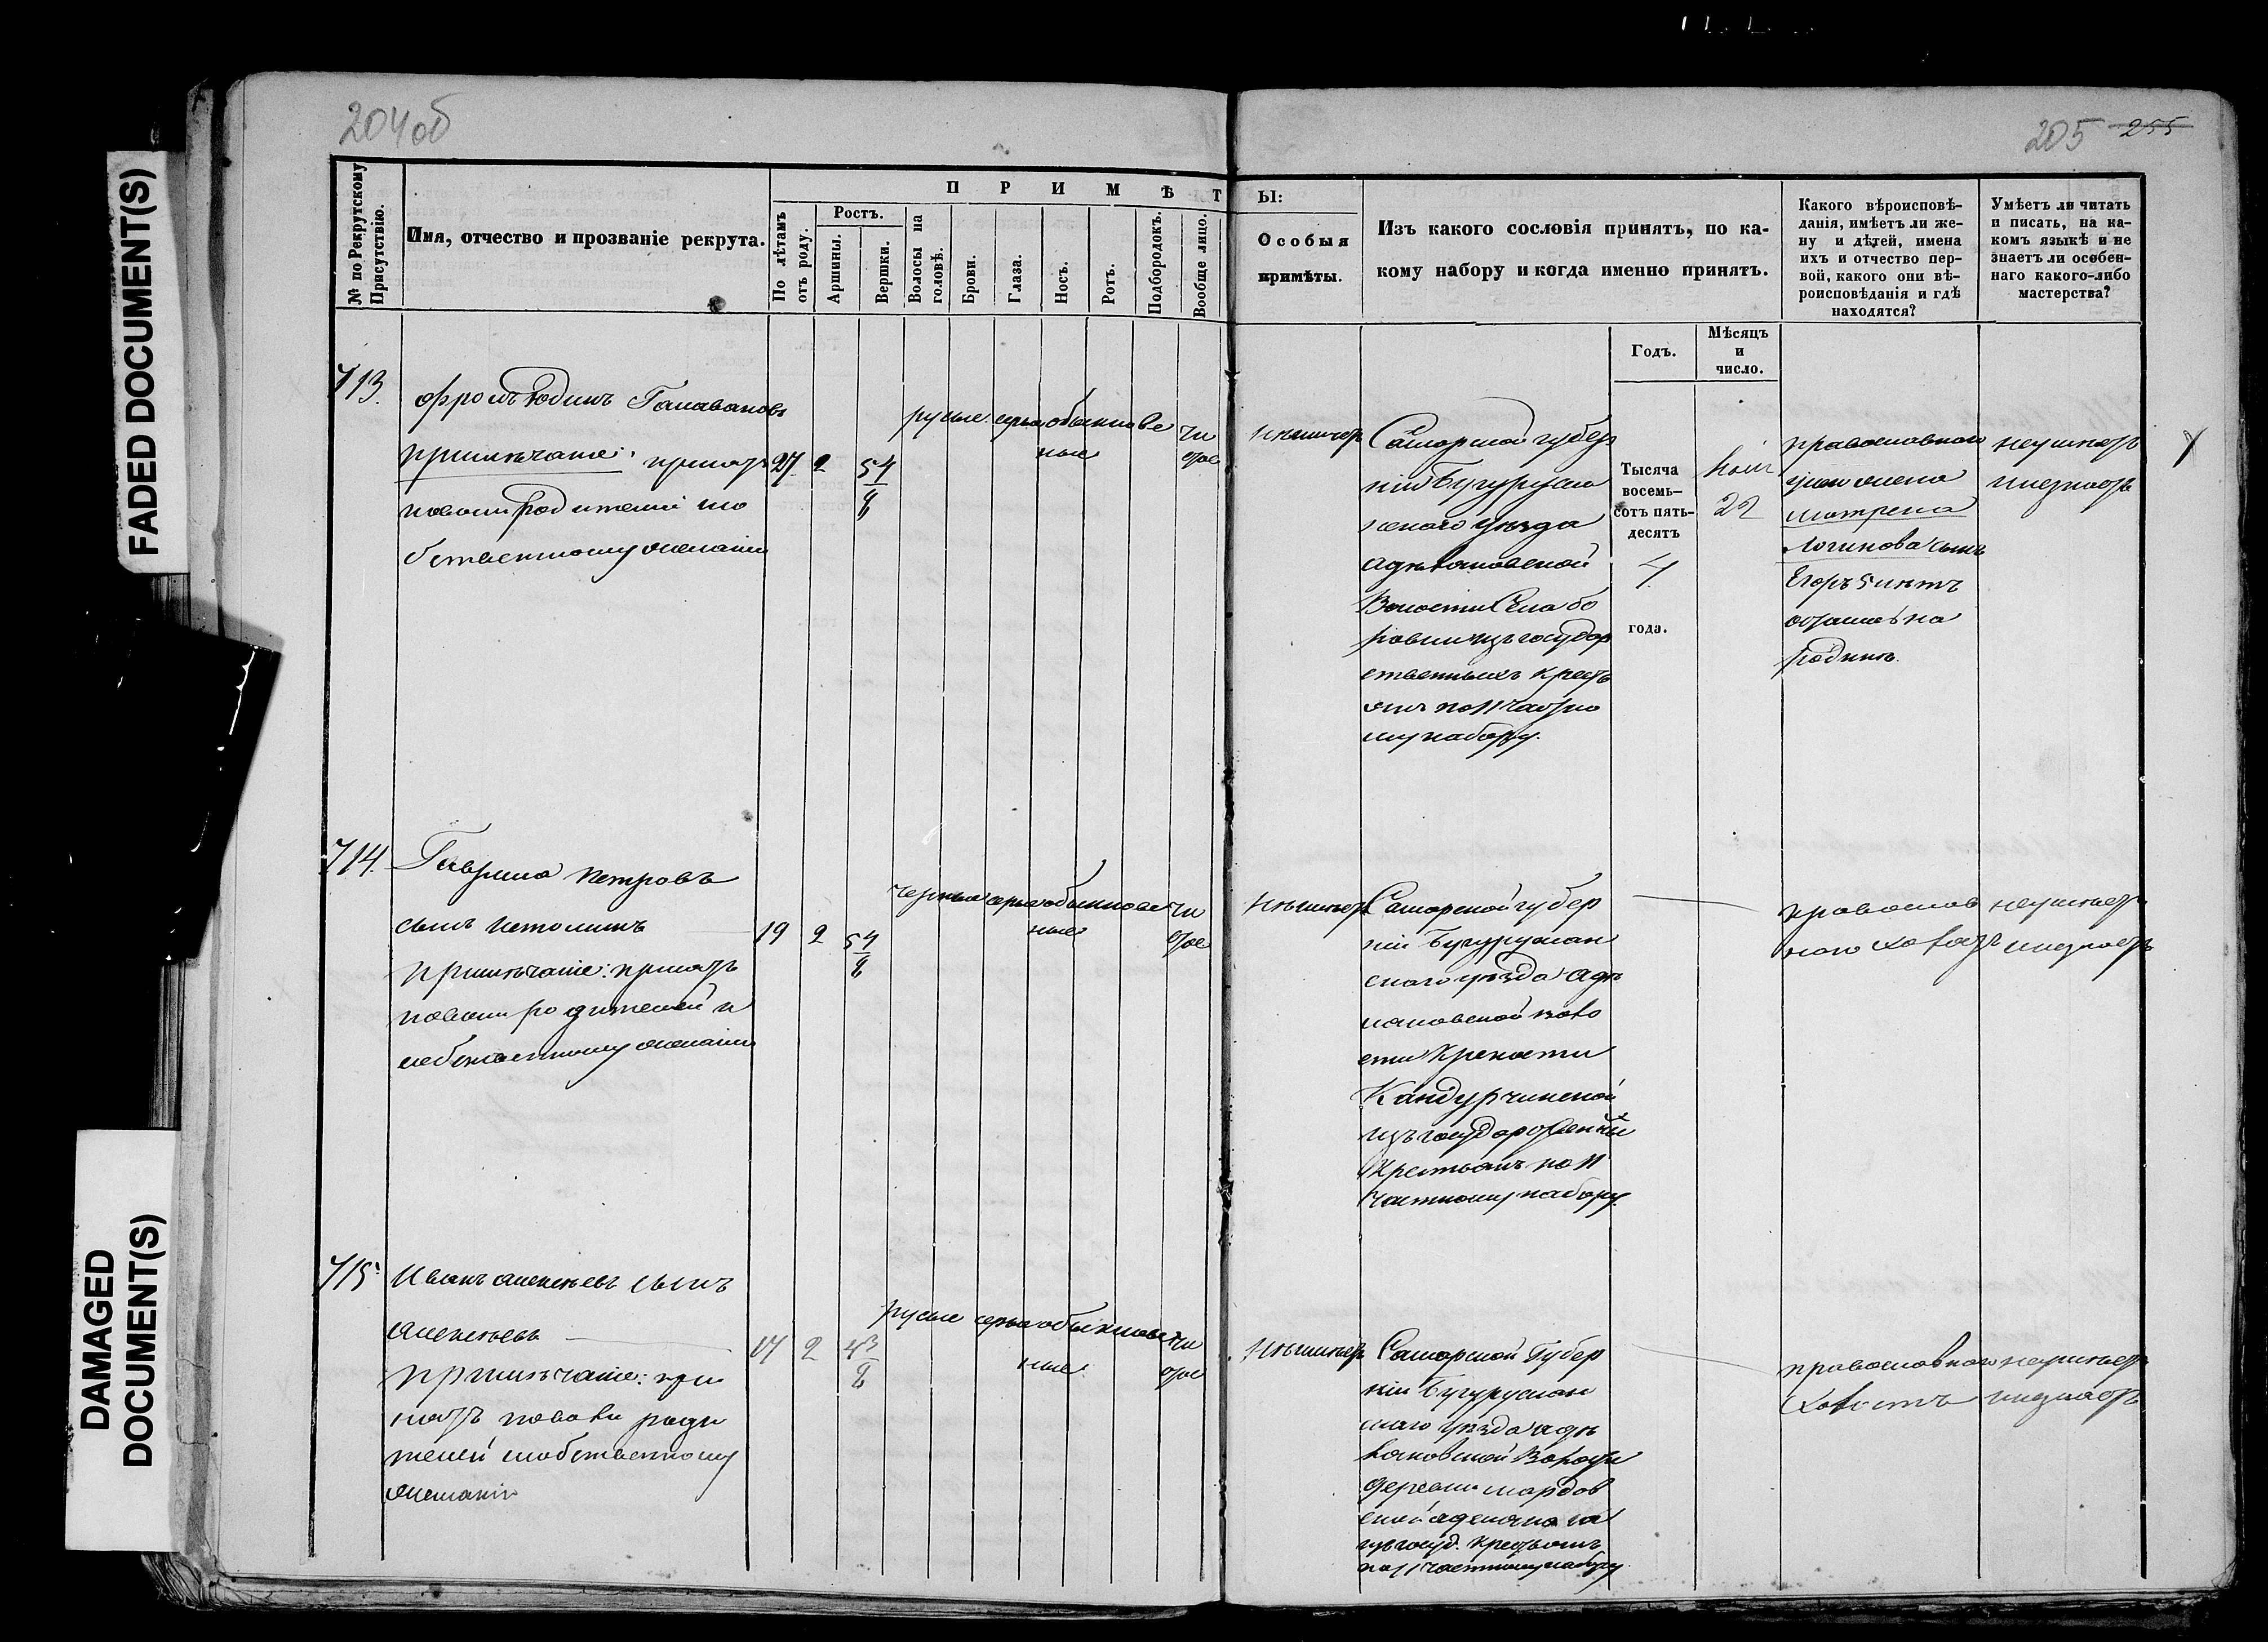 204об
205 255
FADED DOCUMENT(S)
DAMAGED
DOCUMENT(S)
№ по Рекрутскому
Присутствію.
Имя, отчество и прозваніе рекрута.
ПРИМѢТЫ:
По лѣтамъ
отъ роду.
Ростъ.
Аршины.
Вершки.
Волосы на
головѣ.
Брови.
Глаза.
Носъ.
Ротъ.
Подбородокъ.
Вообще лицо.
Особыя
примѣты.
Изъ какого сословія принятъ, по ка-
кому набору и когда именно принятъ.
Какого вѣроисповѣ-
данія, имѣетъ ли же-
ну и дѣтей, имена
ихъ и отчество пер-
вой, какого они вѣ-
роисповѣданія и гдѣ
находятся?
Умѣетъ ли читать
и писать, на ка-
комъ языкѣ и не
знаетъ ли особен-
наго какого-либо
мастерства?
Годъ.
Мѣсяцъ
и
число.
713.
Юдинъ
примѣчаніе: принятъ
родителей
бственному желанію
27 2 5 4/8
русые серые обыкнове
ные
чи
стое
Самарской губер
ніи Бугуруслан
скаго уѣзда
Волости Села бо
ровки изъ государ
ственныхъ кресть
янъ по 11 частно
му набору.
Тысяча
восемь-
сотъ пять-
десятъ
4
года.
22
православнаго
жена
матрена
Логинова сынъ
Егоръ 5 лѣтъ
остались на
родинѣ.
неумѣетъ
незнаетъ
714.
Гаврила Петровъ
сынъ Истоминъ
примѣчаніе: принятъ
родителей и
собственному желанію
19 2 5 4/8
черные серые обыкновен
ные
чи
стое
неимѣетъ
Самарской губер
ніи Бугуруслан
скаго уѣзда
воло
сти Крепости
Кандурчинской
изъ государственныхъ
Крестьянъ по 11
частному набору.
православ
наго холостъ
неумѣетъ
незнаетъ
715.
Иванъ алексѣевъ сынъ
алексѣевъ
примѣчаніе: при
нятъ родит
телей исобственному
желанію
17 2 4 3/8
русые серые обыкновен
ные
чи
стое
неимѣетъ
Самарской Губер
ніи Бугуруслан
скаго уѣзда
Волости
деревни мордов
ской
изъ госуд. крестьянъ
по 11 частному набору
православнаго
холостъ
неумѣетъ
незнаетъ